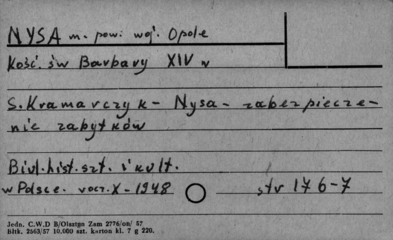 NYSA m. pow. woj. Opole
Kość. św Barbary XIV w
S. Kramarczyk - Nysa - zabezpiecze-
nie zabytków
Biul. hist. szt. i kult.
w Polsce. rocz. X - 1948 str 176-7
Jedn. C.W.D B/Olsztyn Zam 2776/on/ 57
Bltk. 2563/57 10.000 szt. karton kl. 7 g 220.